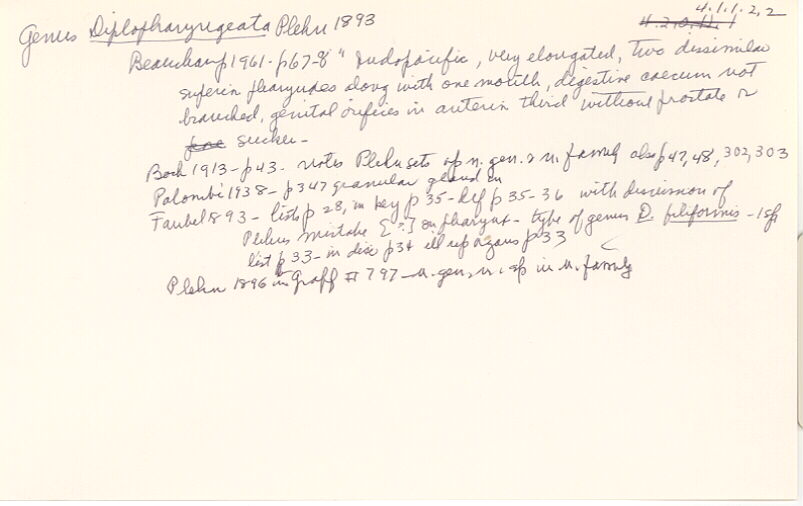 4.1.1.2.2
4.2.0.11.1
Genus Diplopharyngeata Plehn 1893
Beauchamp 1961 - p67-8 " Indopacific, very elongated, two dissimilar
superior pharynxes along with one mouth, digestive caecum not
branched, genital orifices in anterior third without prostate or
sucker -
Bock 1913 - p43 - notes Plehn sets up n. gen. & n. family also p47, 48, 302, 303
Palombi 1938 - p347 granular gland in
Faubel 1893 - lists p 28, in key p 35 - def p 35-36 with discussion of
Plehn's mistake [?] on pharynx - type of genus D. filiformis - 1 sp
list p 33 - in disc p34 ill rep organs p33
Plehn 1896 in Graff # 797 - n. gen, n. sp in n. family